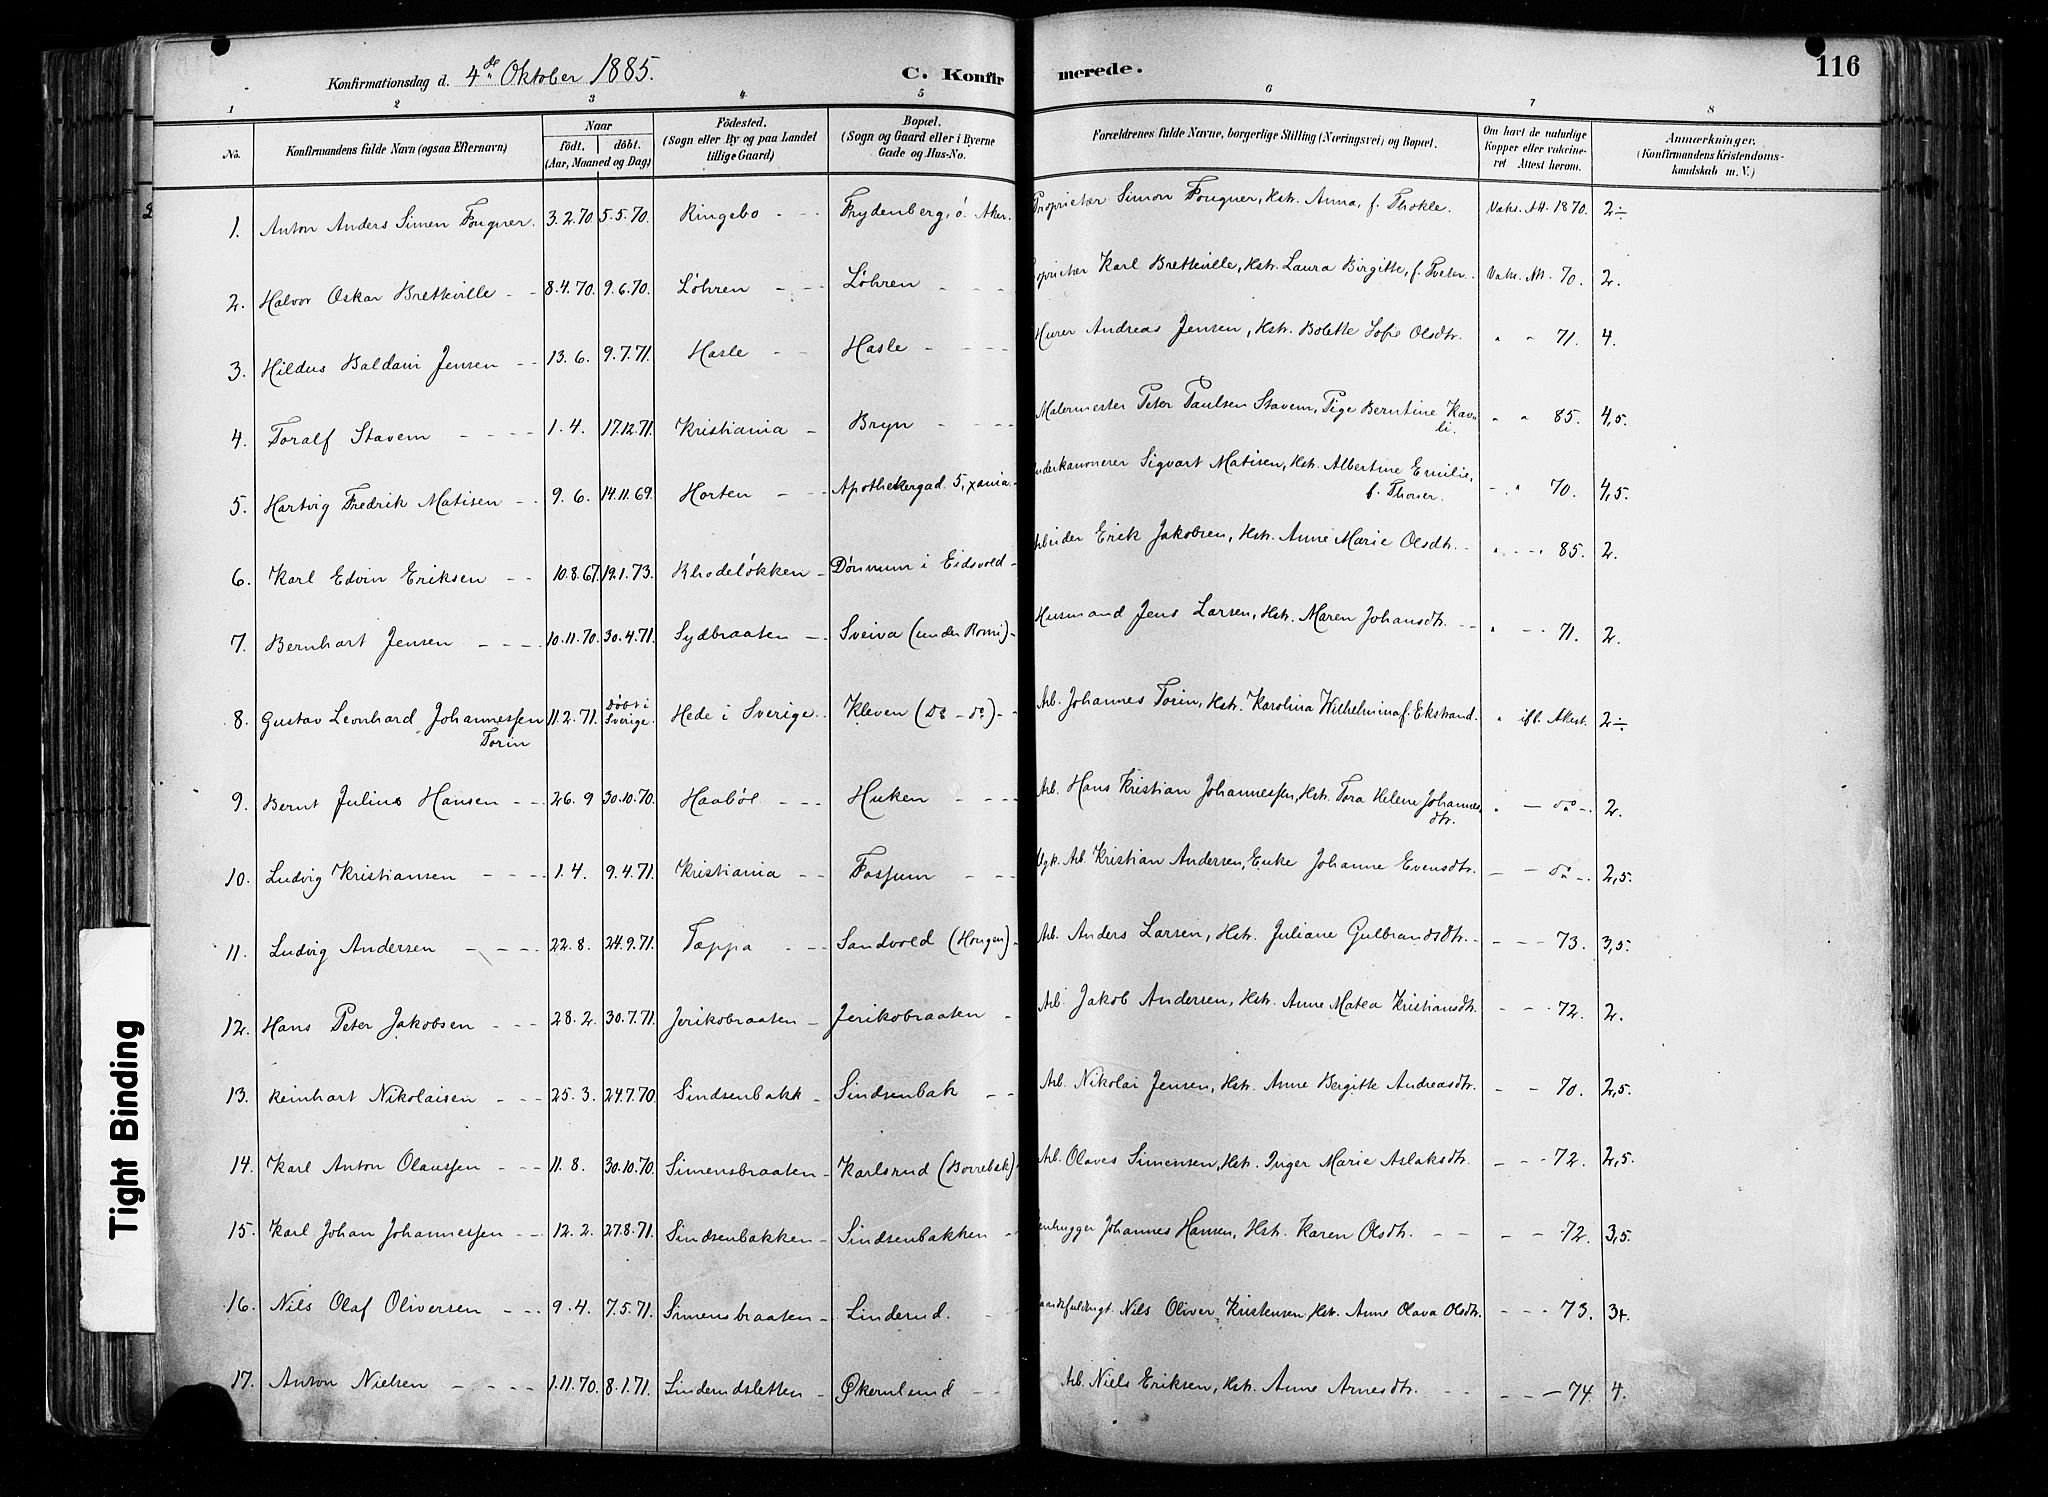 Konfirmationsdag d. 4de Oktober 1885. C. Konfirmerede. 116
1 2 3 4 5 6 7 8
No. Konfirmandens fulde Navn (ogsaa Efternavn) Naar födt. döbt. (Aar, Maaned og Dag) Födested. (Sogn eller By og paa Landet tillige Gaard) Bopæl. (Sogn og Gaard eller i Byerne Gade og Hus-No. Forældrenes fulde Navne, borgerlige Stilling (Næringsvei) og Bopæl. Om havt de naturlige Kopper eller vakcineret Attest herom. Anmærkninger. (Konfirmandens Kristendomskundskab m. V.)
1. Anton Anders Simen Fougner. 3.2.70 5.5.70. Ringebo - - Frydenberg, ö. Aker. Proprietær Simon Fougner, Hstr. Anna, f. Thokle. Vaks. Att. 1870. 2÷
2. Halvor Oskar Bretteville - - 8.4.70. 9.6.70. Löhren - - Löhren - - - Proprietær Karl Bretteville, Hstr. Laura Birgitte, f. Tveter. Vaks. Att. 70. 2.
3. Hildus Baldam Jensen - - 13.6. 9.7.71. Hasle - - Hasle - - - Murer Andreas Jensen, Hstr. Bolette Sofie Olsdtr. " " 71. 4.
4. Toralf Stavem - - - - 1.4. 17.12.71. Kristiania - Bryn - - - Malermester Peter Paulsen Stavem, Pige Berntine Kavli. " " 85. 4,5.
5. Hartvig Fredrik Matisen - - 9.6. 14.11.69. Horten - - Apothekergad. 5, xania - Underkanonerer Sigvart Matisen, Hstr. Albertine Emilie, f. Thorer. - " 70. 4,5.
6. Karl Edvin Eriksen - - 10.8.67. 19.1.73. Rhodelökken - Dönnum i Eidsvold - Arbeider Erik Jakobsen, Hstr. Anne Marie Olsdtr. - " - - 85. 2.
7. Bernhart Jensen - - - 10.11.70. 30.4.71. Sydbraaten - Sveiva (under Romi) - Husmand Jens Larsen, Hstr. Maren Johansdtr. - - " - - 71. 2.
8. Gustav Leonhard Johannessen Torin 11.2.71. Döbt i Sverige. Hede i Sverige. Kleven (do - do) - - Arb. Johannes Torin, Hstr. Karolina Wilhelmina f. Ekstrand. " ifl. Attest. 2÷
9. Bernt Julius Hansen - - 26.9 30.10.70. Haaböl - - - Huken - - - Arb. Hans Kristian Johannessen, Hstr. Tora Helene Johannesdtr. " - do - 2.
10. Ludvig Kristiansen - - - 1.4. 9.4.71. Kristiania - - Fossum - - Ugk. Arb. Kristian Andersen, Enke Johanne Evensdtr. - - do - 2,5.
11. Ludvig Andersen - - - 22.8. 24.9.71. Tæppa - - Sandvold (Hougen) - Arb. Anders Larsen, Hstr. Juliane Gulbrandsdtr. - - - - 73. 3,5.
12. Hans Peter Jakobsen - - - 28.2. 30.7.71. Jerikobraaten - Jerikobraaten - Arb. Jakob Andersen, Hstr. Anne Matea Kristiansdtr. - - - 72. 2.
13. Reinhart Nikolaisen - - - 25.3. 24.7.70. Sindsenbakk - Sindsenbak - - Arb. Nikolai Jensen, Hstr. Anne Bergitte Andreasdtr. - - 70. 2,5.
14. Karl Anton Olaussen - - - 11.8. 30.10.70. Simensbraaten - Karlsrud (Borrebæk) - Arb. Olaves Simensen, Hstr. Inger Marie Aslaksdtr. - - - 72. 2,5.
15. Karl Johan Johannessen - - 12.2. 27.8.71. Sindsenbakken - Sindsenbakken - Stenhugger Johannes Hansen, Hstr. Karen Olsdtr. - - - - 72. 3,5.
16. Nils Olaf Oliversen - - - 9.4. 7.5.71. Simensbraaten - Linderud. - - Gaardsfuldmgt. Nils Oliver Kristensen, Hstr. Anne Olava Olsdtr. - - - 73. 3+.
17. Anton Nielsen - - - - 1.11.70. 8.1.71. Linderudsletten - Økernlund - - Arb. Niels Eriksen, Hstr. Anne Arnesdtr. - - - - - 74. 4.
Tight Binding